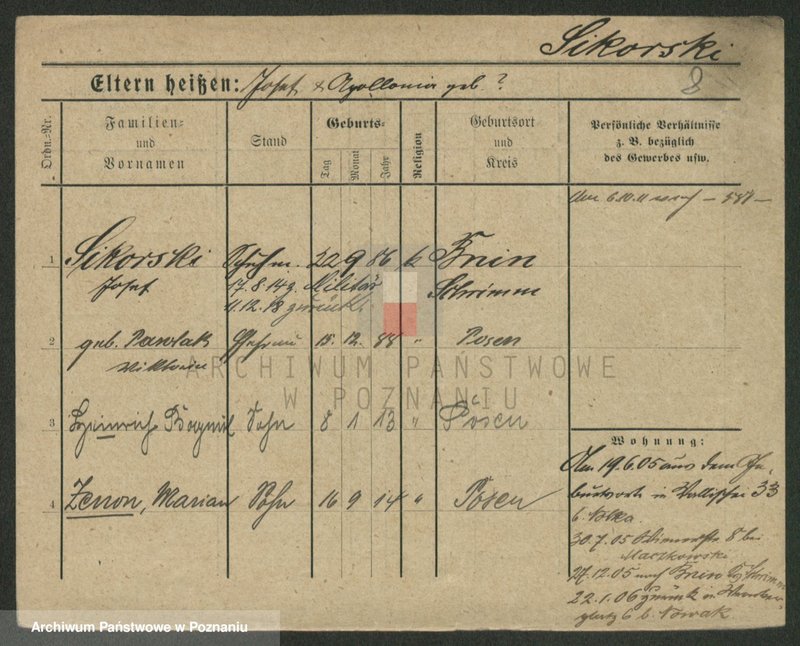 Sikorski
8
Eltern heißen: Josef & Apollonia geb?
Ordn.-Nr.
Familien- und Vornamen
Stand
Geburts-
Tag
Monat
Jahr
Religion
Geburtsort und Kreis
Persönliche Verhältnisse
z. B. bezüglich
des Gewerbes usw.
1 Sikorski Schuhm. 22 9 86 k Bnin
Josef 17.8.14 z. Militär Schrimm
11.12.18 zurück
2 geb. Pawlak Ehefrau 15. 12. 88 " Posen
Wiktoria
3 Heinrich Sohn 8 1 13 " Posen
4 Zenon, Marian Sohn 16 9 14 " Posen
Wohnung:
Am 19.6.05 aus dem Ge-
burtsort in Wallischei 33
b.
30.7.05 8 bei
Maczkowski
27.12.05 nach Bnin Krs Schrimm
22.1.06 zurück in
platz 6 b. Nowak
ARCHIWUM PAŃSTWOWE
W POZNANIU
Archiwum Państwowe w Poznaniu